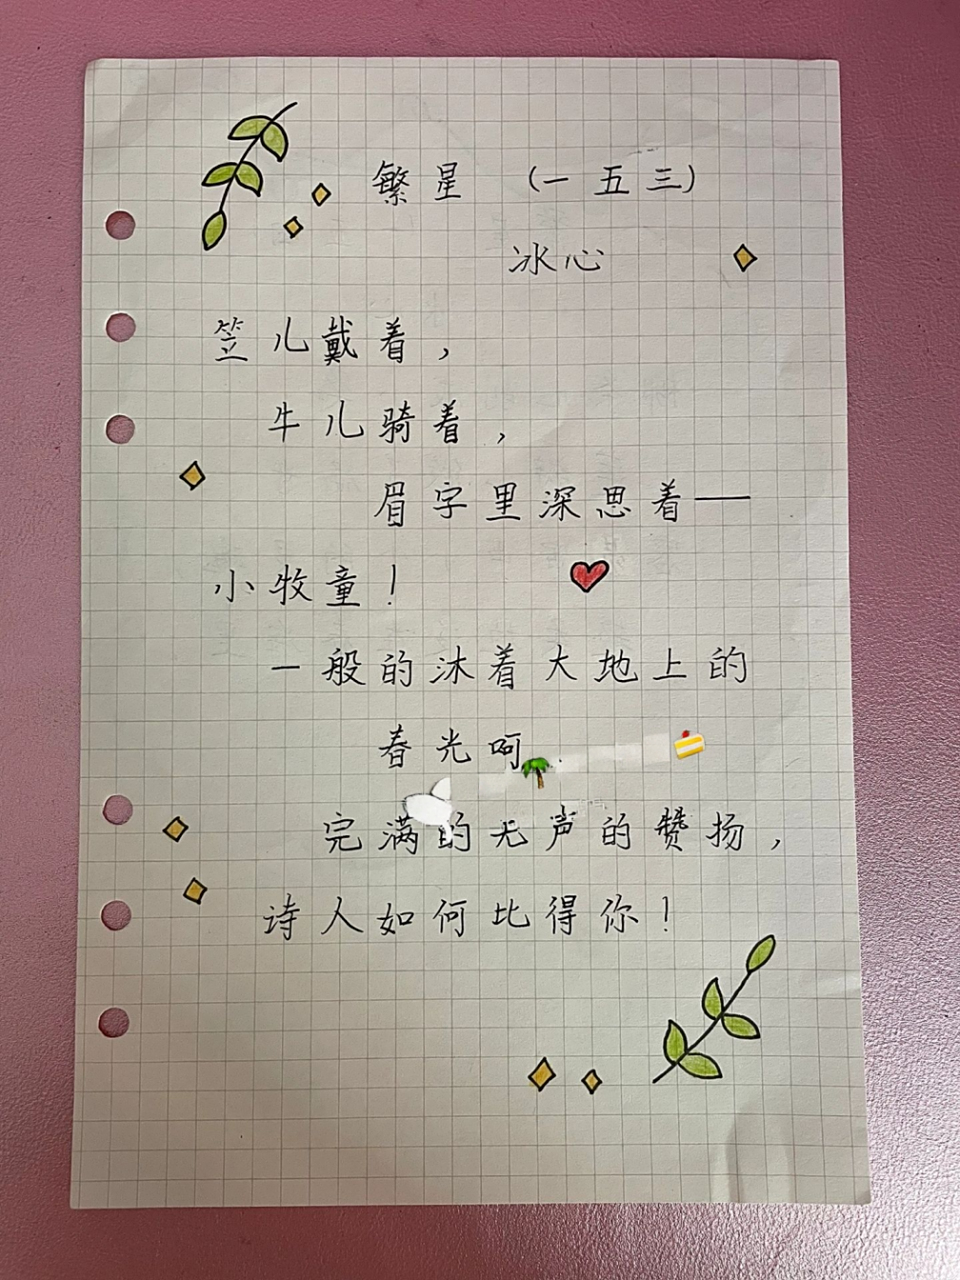 繁星 (一五三)
冰心
笠儿戴着,
牛儿骑着,
眉宇里深思着——
小牧童!
一般的沐着大地上的
春光呵
完满的无声的赞扬,
诗人如何比得你!